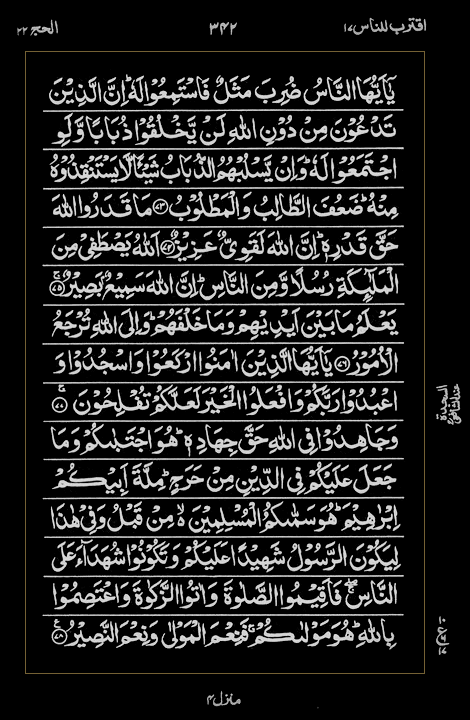 اقترب للناس ١٧ ٣٤٢ الحج ٢٢
يٰۤاَيُّهَا النَّاسُ ضُرِبَ مَثَلٌ فَاسْتَمِعُوْا لَهٗ ؕ اِنَّ الَّذِيْنَ
تَدْعُوْنَ مِنْ دُوْنِ اللّٰهِ لَنْ يَّخْلُقُوْا ذُبَابًا وَّلَوِ
اجْتَمَعُوْا لَهٗ ؕ وَاِنْ يَّسْلُبْهُمُ الذُّبَابُ شَيْـًٔا لَّا يَسْتَنْقِذُوْهُ
مِنْهُ ؕ ضَعُفَ الطَّالِبُ وَالْمَطْلُوْبُ ﴿٧٣﴾ مَا قَدَرُوا اللّٰهَ
حَقَّ قَدْرِهٖ ؕ اِنَّ اللّٰهَ لَقَوِىٌّ عَزِيْزٌ ﴿٧٤﴾ اَللّٰهُ يَصْطَفِىْ مِنَ
الْمَلٰٓئِكَةِ رُسُلًا وَّمِنَ النَّاسِ ؕ اِنَّ اللّٰهَ سَمِيْعٌۢ بَصِيْرٌ ﴿٧٥﴾ۚ
يَعْلَمُ مَا بَيْنَ اَيْدِيْهِمْ وَمَا خَلْفَهُمْ ؕ وَاِلَى اللّٰهِ تُرْجَعُ
الْاُمُوْرُ ﴿٧٦﴾ يٰۤاَيُّهَا الَّذِيْنَ اٰمَنُوا ارْكَعُوْا وَاسْجُدُوْا وَ
اعْبُدُوْا رَبَّكُمْ وَافْعَلُوا الْخَيْرَ لَعَلَّكُمْ تُفْلِحُوْنَ ﴿٧٧﴾ۚ
السجدة
عند الشافعیؒ
وَجَاهِدُوْا فِى اللّٰهِ حَقَّ جِهَادِهٖ ؕ هُوَ اجْتَبٰٮكُمْ وَمَا
جَعَلَ عَلَيْكُمْ فِى الدِّيْنِ مِنْ حَرَجٍ ؕ مِلَّةَ اَبِيْكُمْ
اِبْرٰهِيْمَ ؕ هُوَ سَمّٰٮكُمُ الْمُسْلِمِيْنَ ۙ مِنْ قَبْلُ وَفِىْ هٰذَا
لِيَكُوْنَ الرَّسُوْلُ شَهِيْدًا عَلَيْكُمْ وَتَكُوْنُوْا شُهَدَآءَ عَلَى
النَّاسِ ۖۚ فَاَقِيْمُوا الصَّلٰوةَ وَاٰتُوا الزَّكٰوةَ وَاعْتَصِمُوْا
بِاللّٰهِ ؕ هُوَ مَوْلٰٮكُمْ ۚ فَنِعْمَ الْمَوْلٰى وَنِعْمَ النَّصِيْرُ ﴿٧٨﴾
منزل ٤